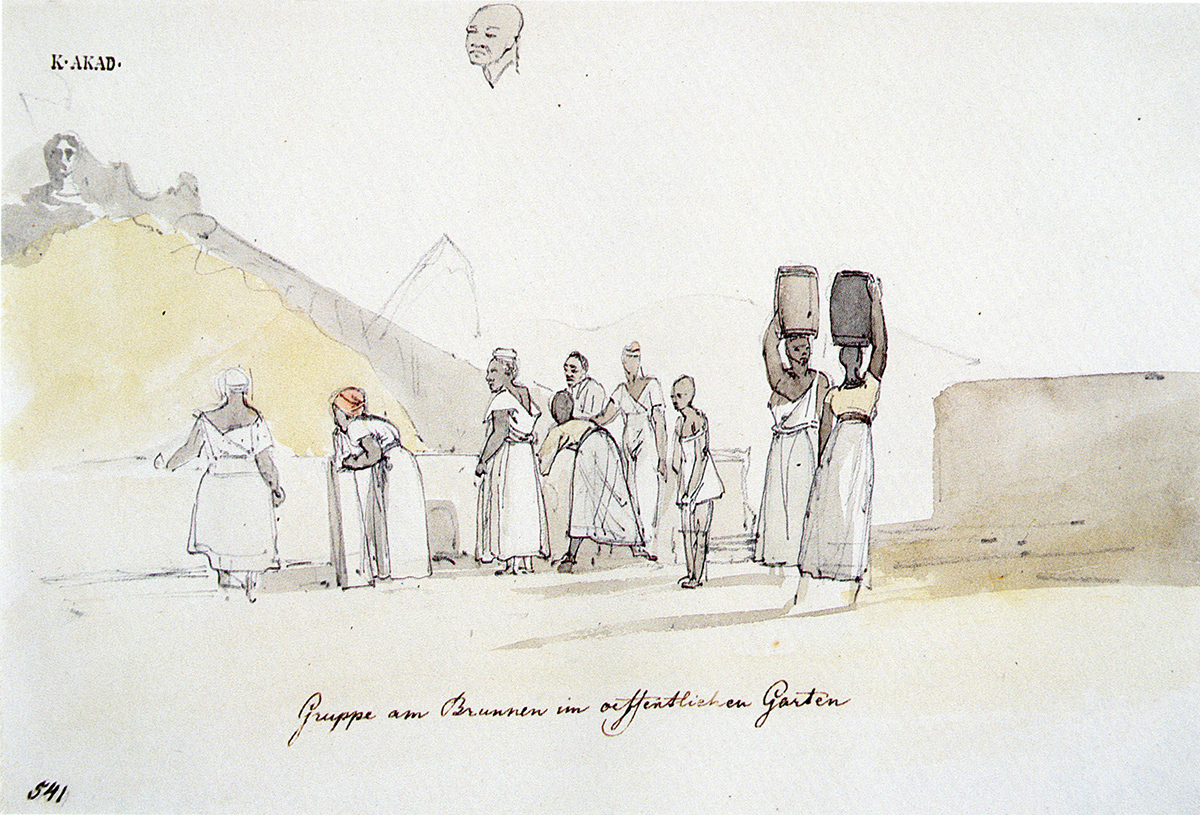 K·AKAD·
Gruppe am Brunnen im oeffentlichen Garten
541